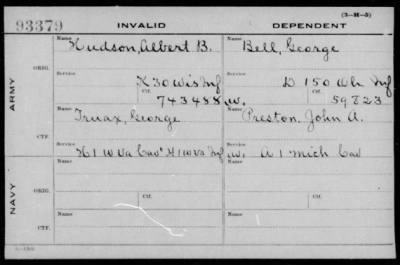 (3-H-5)
93379 INVALID DEPENDENT
Name Hudson, Albert B. Name Bell, George
ORIG.
Service K 30 Wis Inf Service D 150 Oh Inf
Ctf. 743488 W. Ctf. 59723
ARMY
Name Truax, George Name Preston, John A.
CTF.
Service H 1 W Va Cav & H 1 W Va Inf Service W. A 1 Mich Cav
Name Ctf. Name Ctf.
ORIG.
Service Service
NAVY
Name Name
CTF.